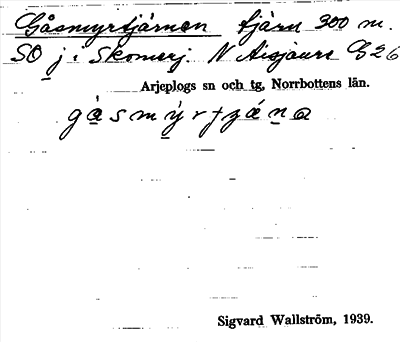 Gåsmyrtjärnen tjärn 300 m.
SO j i Skomerj. N Aisjaure G26
Arjeplogs sn och tg, Norrbottens län.
Sigvard Wallström, 1939.